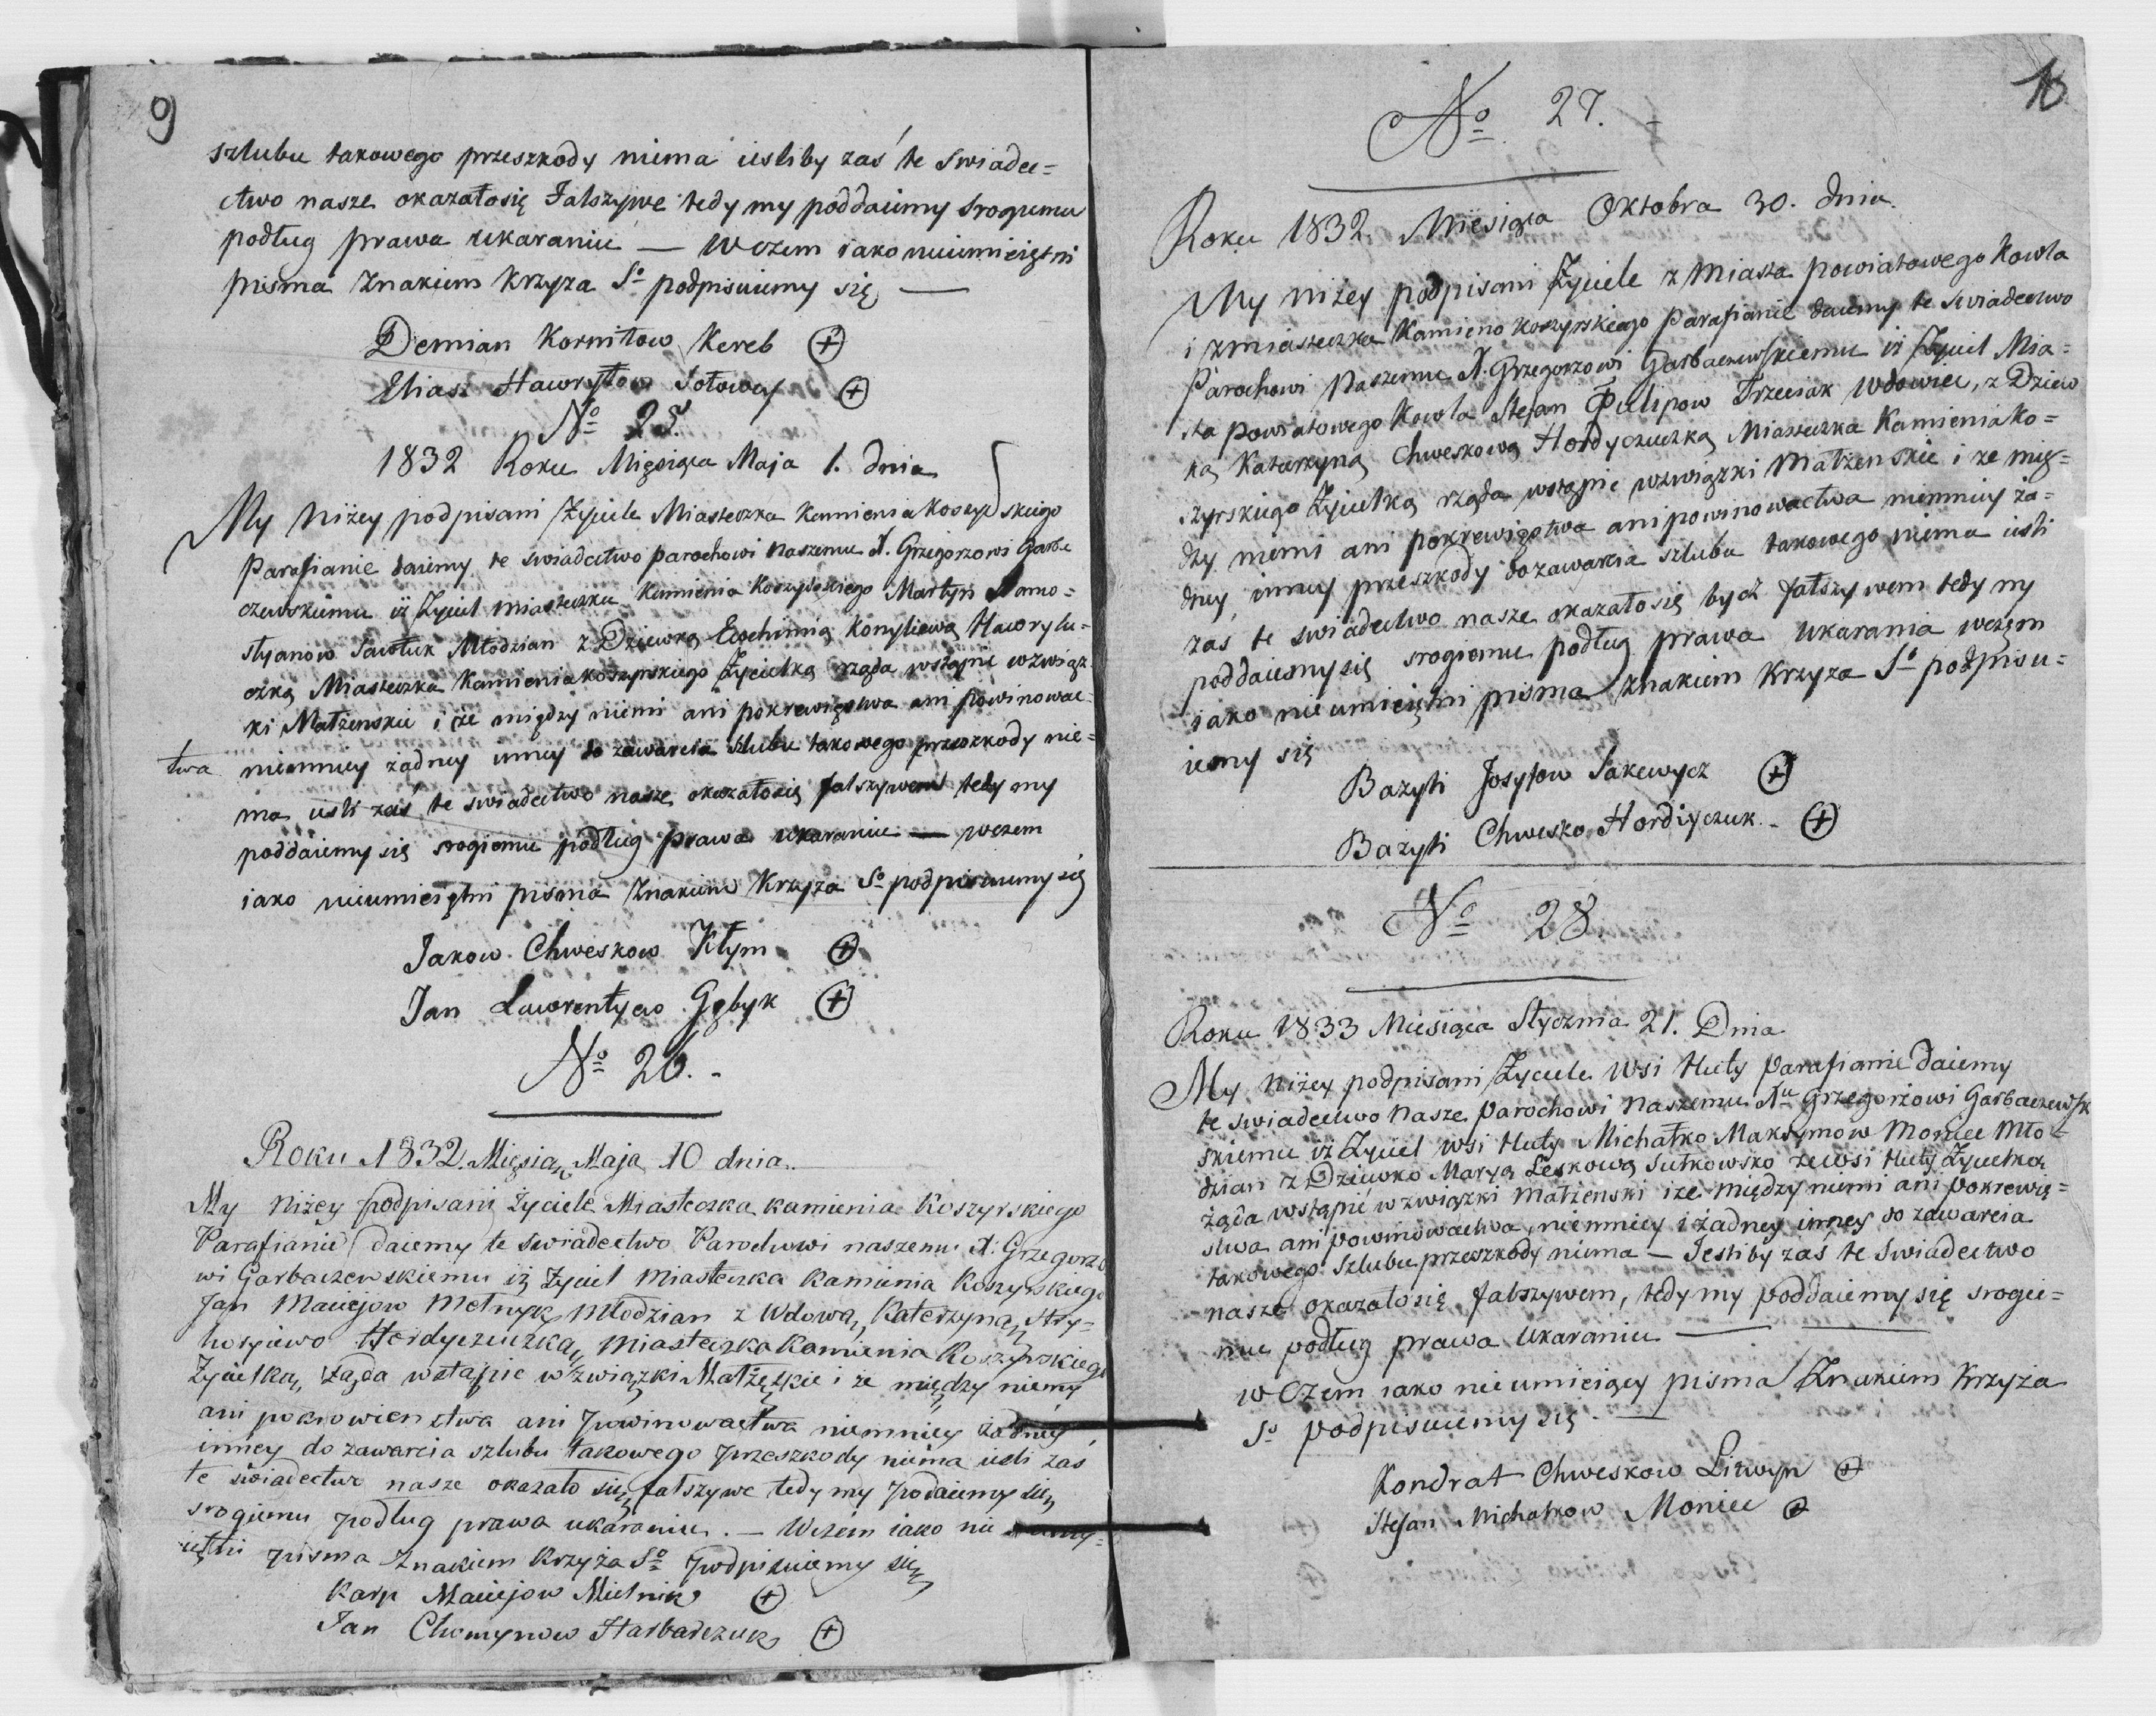 9
szlubu takowego przeszkody niema iesliby zaś te Swiadec=
ctwo nasze okazałosię Fałszywe tedy my poddaiemy Srogiemu
podług prawa ukaraniu — W czem iako nieumieiętni
pisma Znakiem Krzyża So podpisuiemy się —
Demian Korniłow Kereb +
Eliasz Hawryłow Sołowey +
No 25.
1832 Roku Mięsiąca Maja 1. dnia
My Niżey podpisani Życiele Miasteczka Kamienia Koszyrskiego
Parafianie daiemy te swiadectwo parochowi Naszemu X. Grzegorzowi Garba
czewskiemu iż Życiel miasteczka Kamienia Koszyrskiego Martyn
styanow Sawłuk Młodzian z Dziewką Ewchimią Konyliową Hawrylu=
czką Miasteczka Kamieniakoszyrskiego Życielką rząda wstąpić wzwiąz
ki Małzenskie i że między niemi ani pokrewięstwa ani powinowac
twa niemniey żadney inney do zawarcia szlubu takowego przeszkody nie=
ma iesli zaś te swiadectwo nasze okazałosię fałszywem tedy my
poddaiemy się srogiemu podług prawa ukaraniu — wczem
iako nieumieiętni pisma Znakiem Krzyża So podpisuiemy się
Jakow Chweskow Kłym +
Jan Lawrentyew Gębyk +
No 26.
Roku 1832. Mięsią Maja 10 dnia.
My Niżey podpisani Życiele Miasteczka Kamienia Koszyrskiego
Parafianie daiemy te swiadectwo Parochowi naszemu X: Grzegorzo
wi Garbaczewskiemu iż Życiel Miasteczka Kamienia Koszyrskiego
Jan Maciejow Melnyk Młodzian z Wdową Katerzyną Hry=
horyiewo Hordyczuczką, Miasteczka Kamienia Koszyrskiego
Życielką, żąda wstąpic w związki Małżęskie i że między niemy
ani pokrowienstwa ani powinowactwa niemniey żadney
inney do zawarcia szlubu takowego przeszkody niema iesli zaś
te świadectwo nasze okazało się fałszywe tedy my podaiemy się
srogiemu podług prawa ukaraniu. — Wczem iako nie
iętni pisma Znakiem Krzyża So podpisuiemy się
Karp Maciejow Mielnik +
Jan Chomynow Harbarczuk +
10
No 27.
Roku 1832 Miesiąca Oktobra 30. dnia.
My niżey podpisani Życiele z Miasta powiatowego Kowla
i zmiasteczka Kamieno koszyrskiego Parafianie daiemy te swiadectwo
Parochowi Naszemu X. Grzegorzowi Garbaczewskiemu iż Życiel Mia=
sta powiatowego Kowla Stefan Filipow Trzeciak Wdowiec, z Dziew
ką Katarzyną Chweskową Hordyczuczką Miasteczka Kamieniako=
szyrskiego Życielką rząda wstąpić wzwiązki Małżenskie i ze mię=
dzy niemi ani pokrewięstwa ani powinowactwa niemniey ża=
dney inney przeszkody dozawarcia szlubu takowego niema iesli
zaś te swiadectwo nasze okazałosię bydź fałszywem tedy my
poddaiemysię srogiemu podług prawa Ukarania wczęm
iako nieumieiętni pisma znakiem Krzyża So podpisu=
iemy się
Bazyli Josyfow Sakewycz +
Bazyli Chwesko Hordiyczuk. +
No 28.
Roku 1833 Miesiąca Stycznia 21. Dnia
My Niżey podpisani Życiele Wsi Huty Parafianie daiemy
te swiadectwo Nasze Parochowi Naszemu Xu Grzegorżowi Garbaczewsk
skiemu iż Życiel wsi Huty Michałko Maksymow Moniec Mło=
dzian z Dziewko Maryą Leskową Sutkowsko zewsi Huty Życielką
żąda wstąpić w związki Małżenski iże między niemi ani pokrewię=
stwa ani powinowactwa, niemniey i żadney inney do zawarcia
takowego Szlubu przeszkody niema — Jesliby zaś te Swiadectwo
nasze okazałosię fałszywem, tedy my poddaiemy się srogie=
mu podług prawa Ukaraniu —
w Czem iako nieumieiący pisma Znakiem Krzyża
So podpisuiemy się. —
Kondrat Chweskow Litwyn +
Stefan Michałkow Moniec +